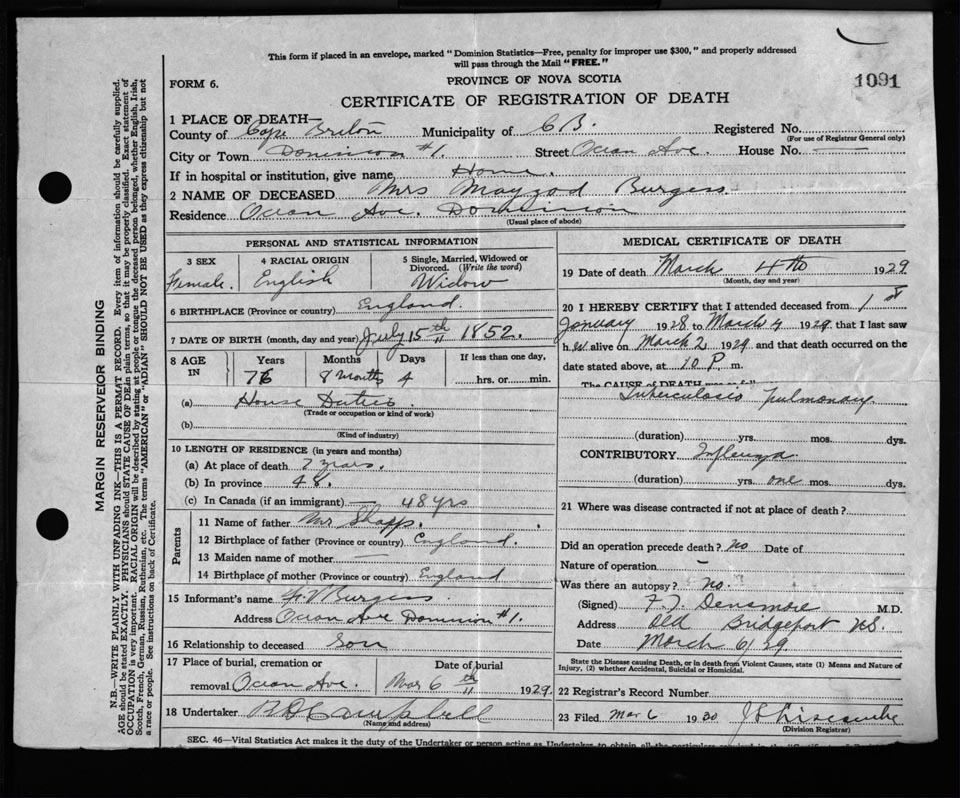 This form if placed in an envelope, marked "Dominion Statistics—Free, penalty for improper use $300," and properly addressed
will pass through the Mail "FREE."
1091
FORM 6.
PROVINCE OF NOVA SCOTIA
CERTIFICATE OF REGISTRATION OF DEATH
1 PLACE OF DEATH—
County of Cape Breton Municipality of C B. Registered No.
(For use of Registrar General only)
City or Town Dominion #1. Street Ocean Ave. House No. —
If in hospital or institution, give name Home.
2 NAME OF DECEASED Mrs Burgess.
Residence Ocean Ave. Dominion
(Usual place of abode)
PERSONAL AND STATISTICAL INFORMATION
3 SEX
Female.
4 RACIAL ORIGIN
English
5 Single, Married, Widowed or
Divorced. (Write the word)
Widow
6 BIRTHPLACE (Province or country) England.
7 DATE OF BIRTH (month, day and year) July 15th 1852.
8 AGE IN
Years Months Days If less than one day,
76 8 months 4 hrs. or min.
(a) House Duties.
(Trade or occupation or kind of work)
(b)
(Kind of industry)
10 LENGTH OF RESIDENCE (in years and months)
(a) At place of death 2 years.
(b) In province 48.
(c) In Canada (if an immigrant) — 48 yrs
Parents
11 Name of father Mr
12 Birthplace of father (Province or country) England.
13 Maiden name of mother —
14 Birthplace of mother (Province or country) England
15 Informant's name Burgess.
Address Ocean Ave Dominion #1.
16 Relationship to deceased Son
17 Place of burial, cremation or
removal Ocean Ave.
Date of burial
Mar 6th 1929.
18 Undertaker Campbell
(Name and address)
MEDICAL CERTIFICATE OF DEATH
19 Date of death March 4th 1929
(Month, day and year)
20 I HEREBY CERTIFY that I attended deceased from 1st
January 1928 to March 4 1929 that I last saw
h er alive on March 2 1929 and that death occurred on the
date stated above, at 10 P. m.
The CAUSE of DEATH was as follows
Tuberculosis Pulmonary.
(duration) yrs. mos. dys.
CONTRIBUTORY Influenza
(duration) yrs. one mos. dys.
21 Where was disease contracted if not at place of death?
Did an operation precede death? no Date of
Nature of operation —
Was there an autopsy? no.
(Signed) Densmore M.D.
Address Old Bridgeport N.S.
Date March 6/29
State the Disease causing Death, or in death from Violent Causes, state (1) Means and Nature of
Injury, (2) whether Accidental, Suicidal or Homicidal.
22 Registrar's Record Number
23 Filed Mar 6 1930
(Division Registrar)
SEC. 46—Vital Statistics Act makes it the duty of the Undertaker or person acting as Undertaker to obtain all the particulars required in the
MARGIN RESERVEIOR BINDING
N.B.—WRITE PLAINLY WITH UNFADING INK—THIS IS A PERMAT RECORD. Every item of information should be carefully supplied.
AGE should be stated EXACTLY. PHYSICIANS should STATE CAUSE OF DEAin plain terms, so that it may be properly classified. Exact statement of
OCCUPATION is very important. RACIAL ORIGIN will be described by stating at people or tongue the deceased person belonged, whether English, Irish,
Scotch, French, German, Russian, Ruthenian, etc. The terms "AMERICAN" or "ADIAN" SHOULD NOT BE USED as they express citizenship but not
a race or people. See instructions on back of Certificate.